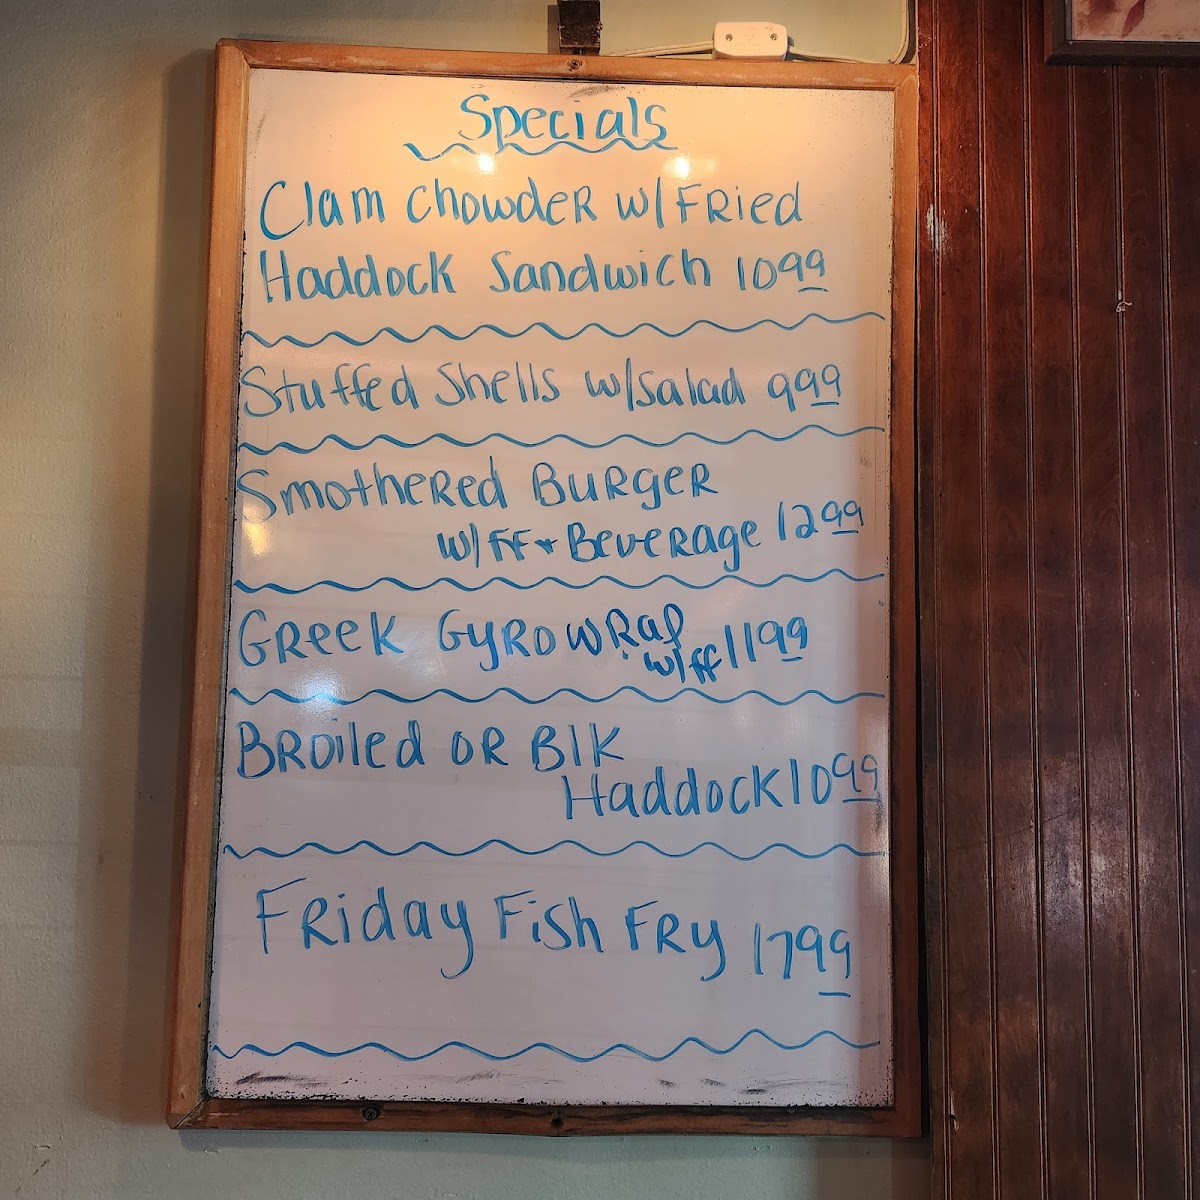 Specials
Clam Chowder w/Fried
Haddock Sandwich 1099
Stuffed Shells w/salad 999
Smothered Burger
w/ff + Beverage 1299
Greek Gyro wrap
w/ff 1199
Broiled or Blk
Haddock 1099
Friday Fish Fry 1799